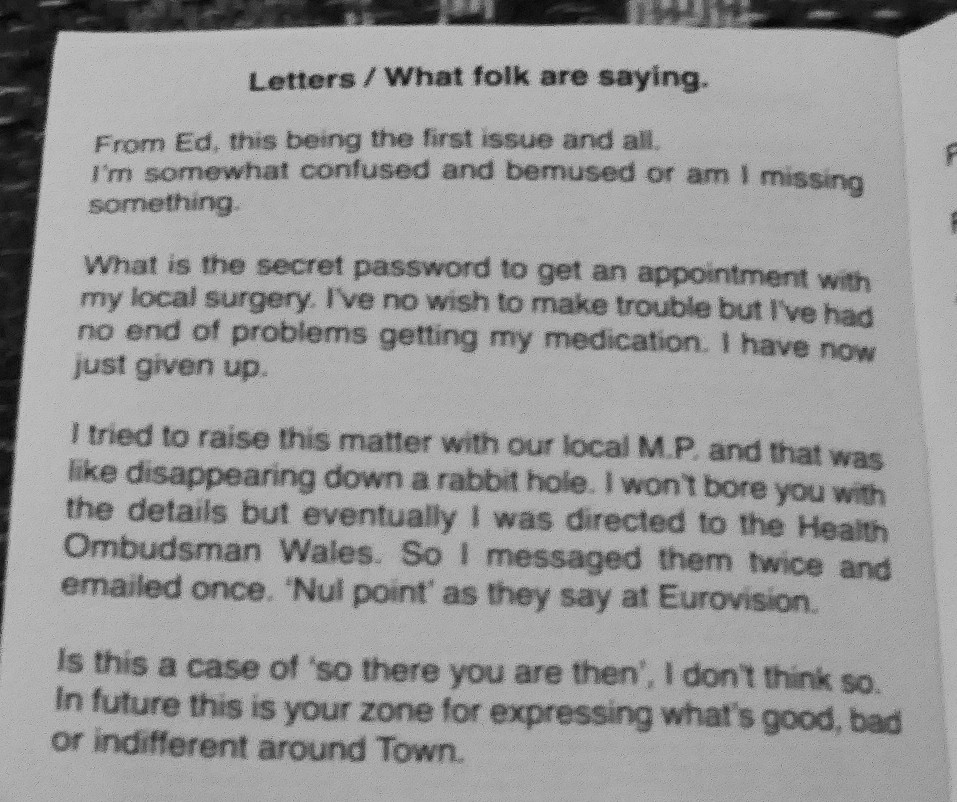 Letters / What folk are saying.
From Ed, this being the first issue and all.
I'm somewhat confused and bemused or am I missing
something.
What is the secret password to get an appointment with
my local surgery. I've no wish to make trouble but I've had
no end of problems getting my medication. I have now
just given up.
I tried to raise this matter with our local M.P. and that was
like disappearing down a rabbit hole. I won't bore you with
the details but eventually I was directed to the Health
Ombudsman Wales. So I messaged them twice and
emailed once. 'Nul point' as they say at Eurovision.
Is this a case of 'so there you are then', I don't think so.
In future this is your zone for expressing what's good, bad
or indifferent around Town.